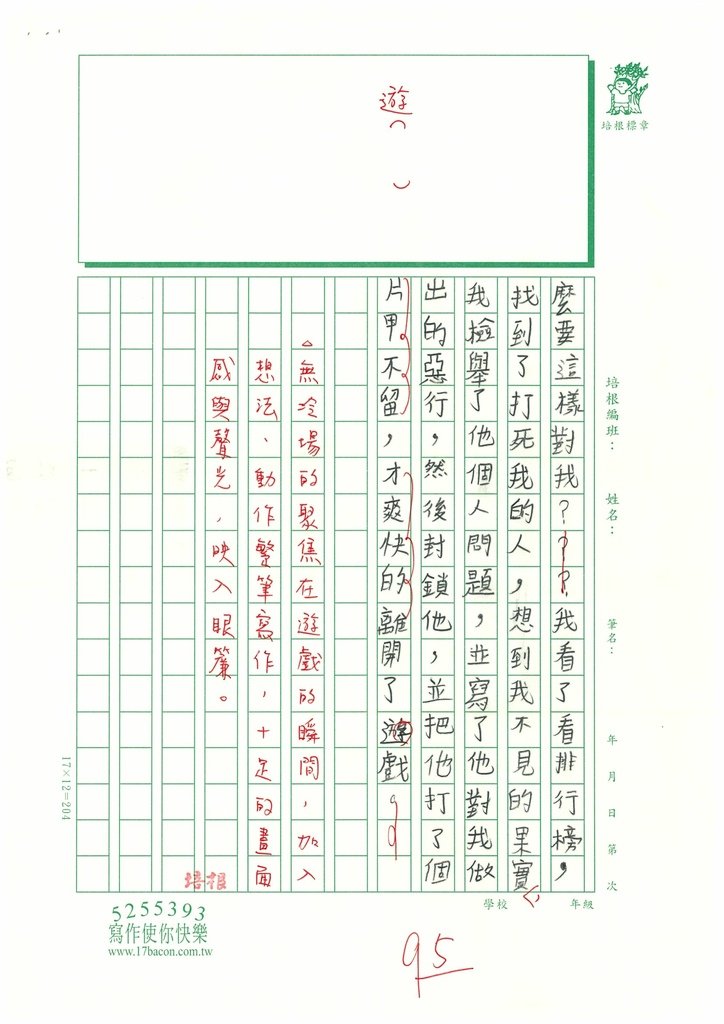 遊
培根標章
麼要這樣對我？？？我看了看排行榜，
找到了打死我的人，想到我不見的果實
我檢舉了他個人問題，並寫了他對我做
出的惡行，然後封鎖他，並把他打了個
片甲不留，才爽快的離開了遊戲。
。無冷場的聚焦在遊戲的瞬間，加入
想法、動作繁筆寫作，十足的畫面
感與聲光，映入眼簾。
培根編班： 姓名： 筆名： 年 月 日 第 次
學校 年級
17×12=204
培根
5255393
寫作使你快樂
www.17bacon.com.tw
95